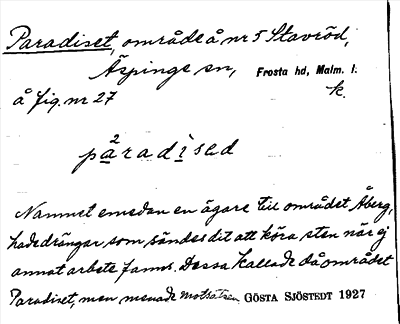 Paradiset, område å nr 5 Stavröd,
Äspinge sn, Frosta hd, Malm. l.
å fig. nr 27 k.
2
paradised
Namnet emedan en ägare till området, Åberg,
hade drängar som sändes dit att köra sten när ej
annat arbete fanns. Dessa kallade då området
Paradiset, men menade motsatsen. GÖSTA SJÖSTEDT 1927